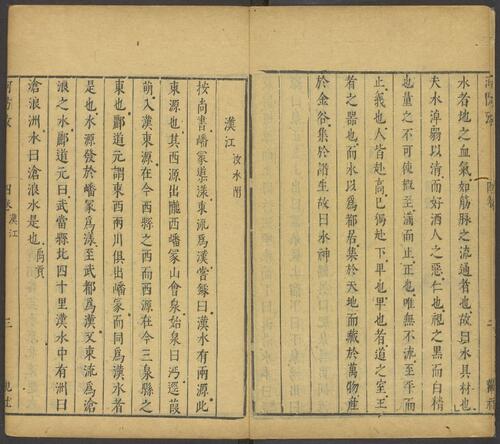 水者地之血氣如筋脉之流通者也故曰水具材也
夫水淖弱以清而好洒人之惡仁也視之黑而白精
也量之不可使槩至滿而止正也唯無不流至平而
止義也人皆赴高已獨赴下卑也卑也者道之室王
者之器也而水以爲都居集於天地而藏於萬物產
於金石集於諸生故曰水神
漢江 汝水附
按尚書嶓冢導漾東流爲漢嘗緣曰漢水有兩源此
東源也其西源出隴西嶓冢山會泉始泉曰沔逕葭
萌入漢東源在今西縣之西而西源在今三泉縣之
東也酈道元謂東西兩川俱出嶓冢而同爲漢水者
是也水源發於嶓冢爲漾至武都爲漢又東流爲滄
浪之水酈道元曰武當縣北四十里漢水中有洲曰
滄浪洲水曰滄浪水是也禹貢
四卷 漢江
三